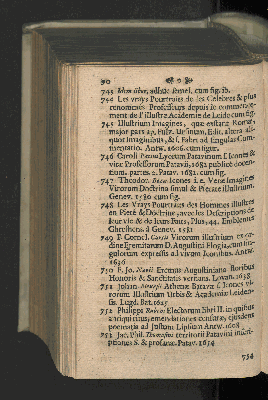 90
743 Idem liber, adhuc semel, cum fig. ib.
744 Les vrays Pourtraits de les Celebres & plus
renommés Professeurs depuis le commence-
ment de l'illustre Academie de Leide cum fig.
745 Illustrium Imagines, quæ exstant Romæ,
major pars ap. Fulv. Ursinum, Edit. altera ali-
quot Imaginibus, & I. Fabri ad singulas Com-
mentatio. Antw. 1606. cum figur.
746 Caroli Patini Lyceum Patavinum s. Icones &
vitæ Professorum Patavii, 1682 publice docen-
tium, partes 2. Patav. 1682. cum fig.
747 Theodor. Bezæ Icones i. e. Veræ Imagines
Virorum Doctrina simul & Pietate illustrium.
Genev. 1580 cum fig.
748 Les Vrais Pourtraits des Hommes illustres
en Pieté & Doctrine, avec les Descriptions de
leur vie & de leurs Faits, Plus, 44. Emblemes
Chrestiens. à Genev. 1581
749 F. Cornel. Curtii Virorum illustrium ex or-
dine Eremitarum D. Augustini Elogia, cum sin-
gulorum expressis ad vivum Iconibus. Antw.
1636
750 F. Jo. Navii Eremus Augustiniana floribus
Honoris & Sanctitatis vernans. Lovan. 1658
751 Johan. Meursii Athenæ Batavæ s. Icones vi-
rorum Illustrium Urbis & Academiæ Leiden-
sis. Lugd. Bat. 1625
752 Philippi Rubeni Electorum libri II. in quibus
antiqui ritus, emendationes censuræ, ejusdem
poematia ad Justum Lipsium Antw. 1608
753 Jac. Phil. Thomasini territorii Patavini inscri-
ptiones S. & prophanæ. Patav. 1654
754